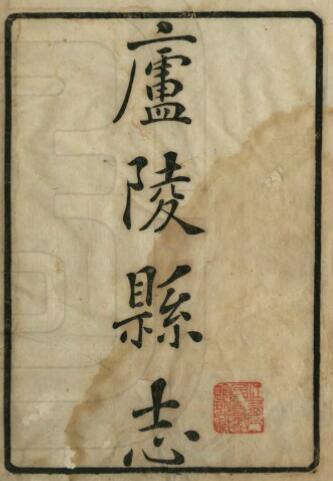 廬陵縣志